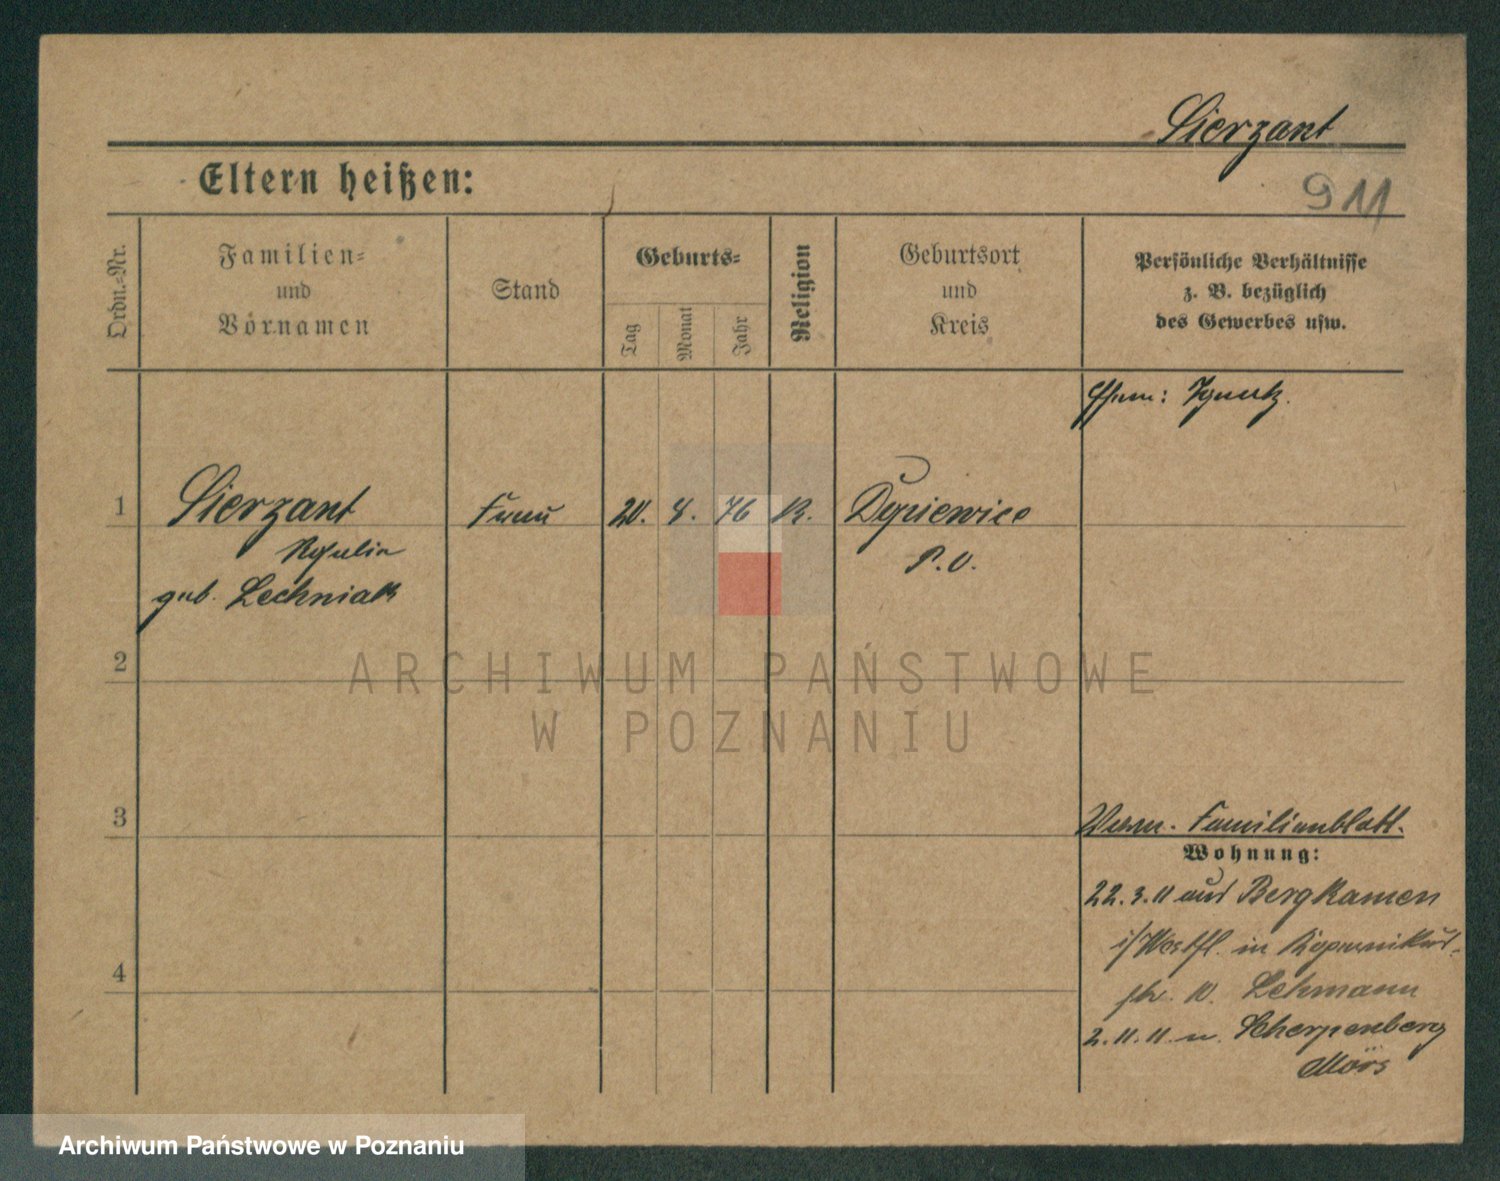 Sierzant
911
Eltern heißen:
Ordn.-Nr.
Familien-
und
Vornamen
Stand
Geburts-
Tag
Monat
Jahr
Religion
Geburtsort
und
Kreis
Persönliche Verhältnisse
z. B. bezüglich
des Gewerbes usw.
Ehem: Ignatz.
1
Sierzant
Frau
20. 8. 76
K.
Dypiewice
Rosalia
P. O.
geb. Lechniak
ARCHIWUM PAŃSTWOWE
W POZNANIU
2
3
Familienblatt.
Wohnung:
22. 3. 11 aus Bergkamen
i/Westfl. in
str. 10. Lehmann
4
2. 11. 11. n. Scherpenberg
Mörs
Archiwum Państwowe w Poznaniu